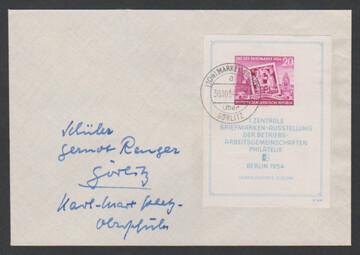 TAG DER BRIEFMARKE 1954
20
DEUTSCHE DEMOKRATISCHE REPUBLIK
a
über
GÖRLITZ
1. ZENTRALE
BRIEFMARKEN-AUSSTELLUNG
DER BETRIEBS-
ARBEITSGEMEINSCHAFTEN
PHILATELIE
BERLIN 1954
Schüler
Gernot Renger
Görlitz
Karl-Marx
Oberschule